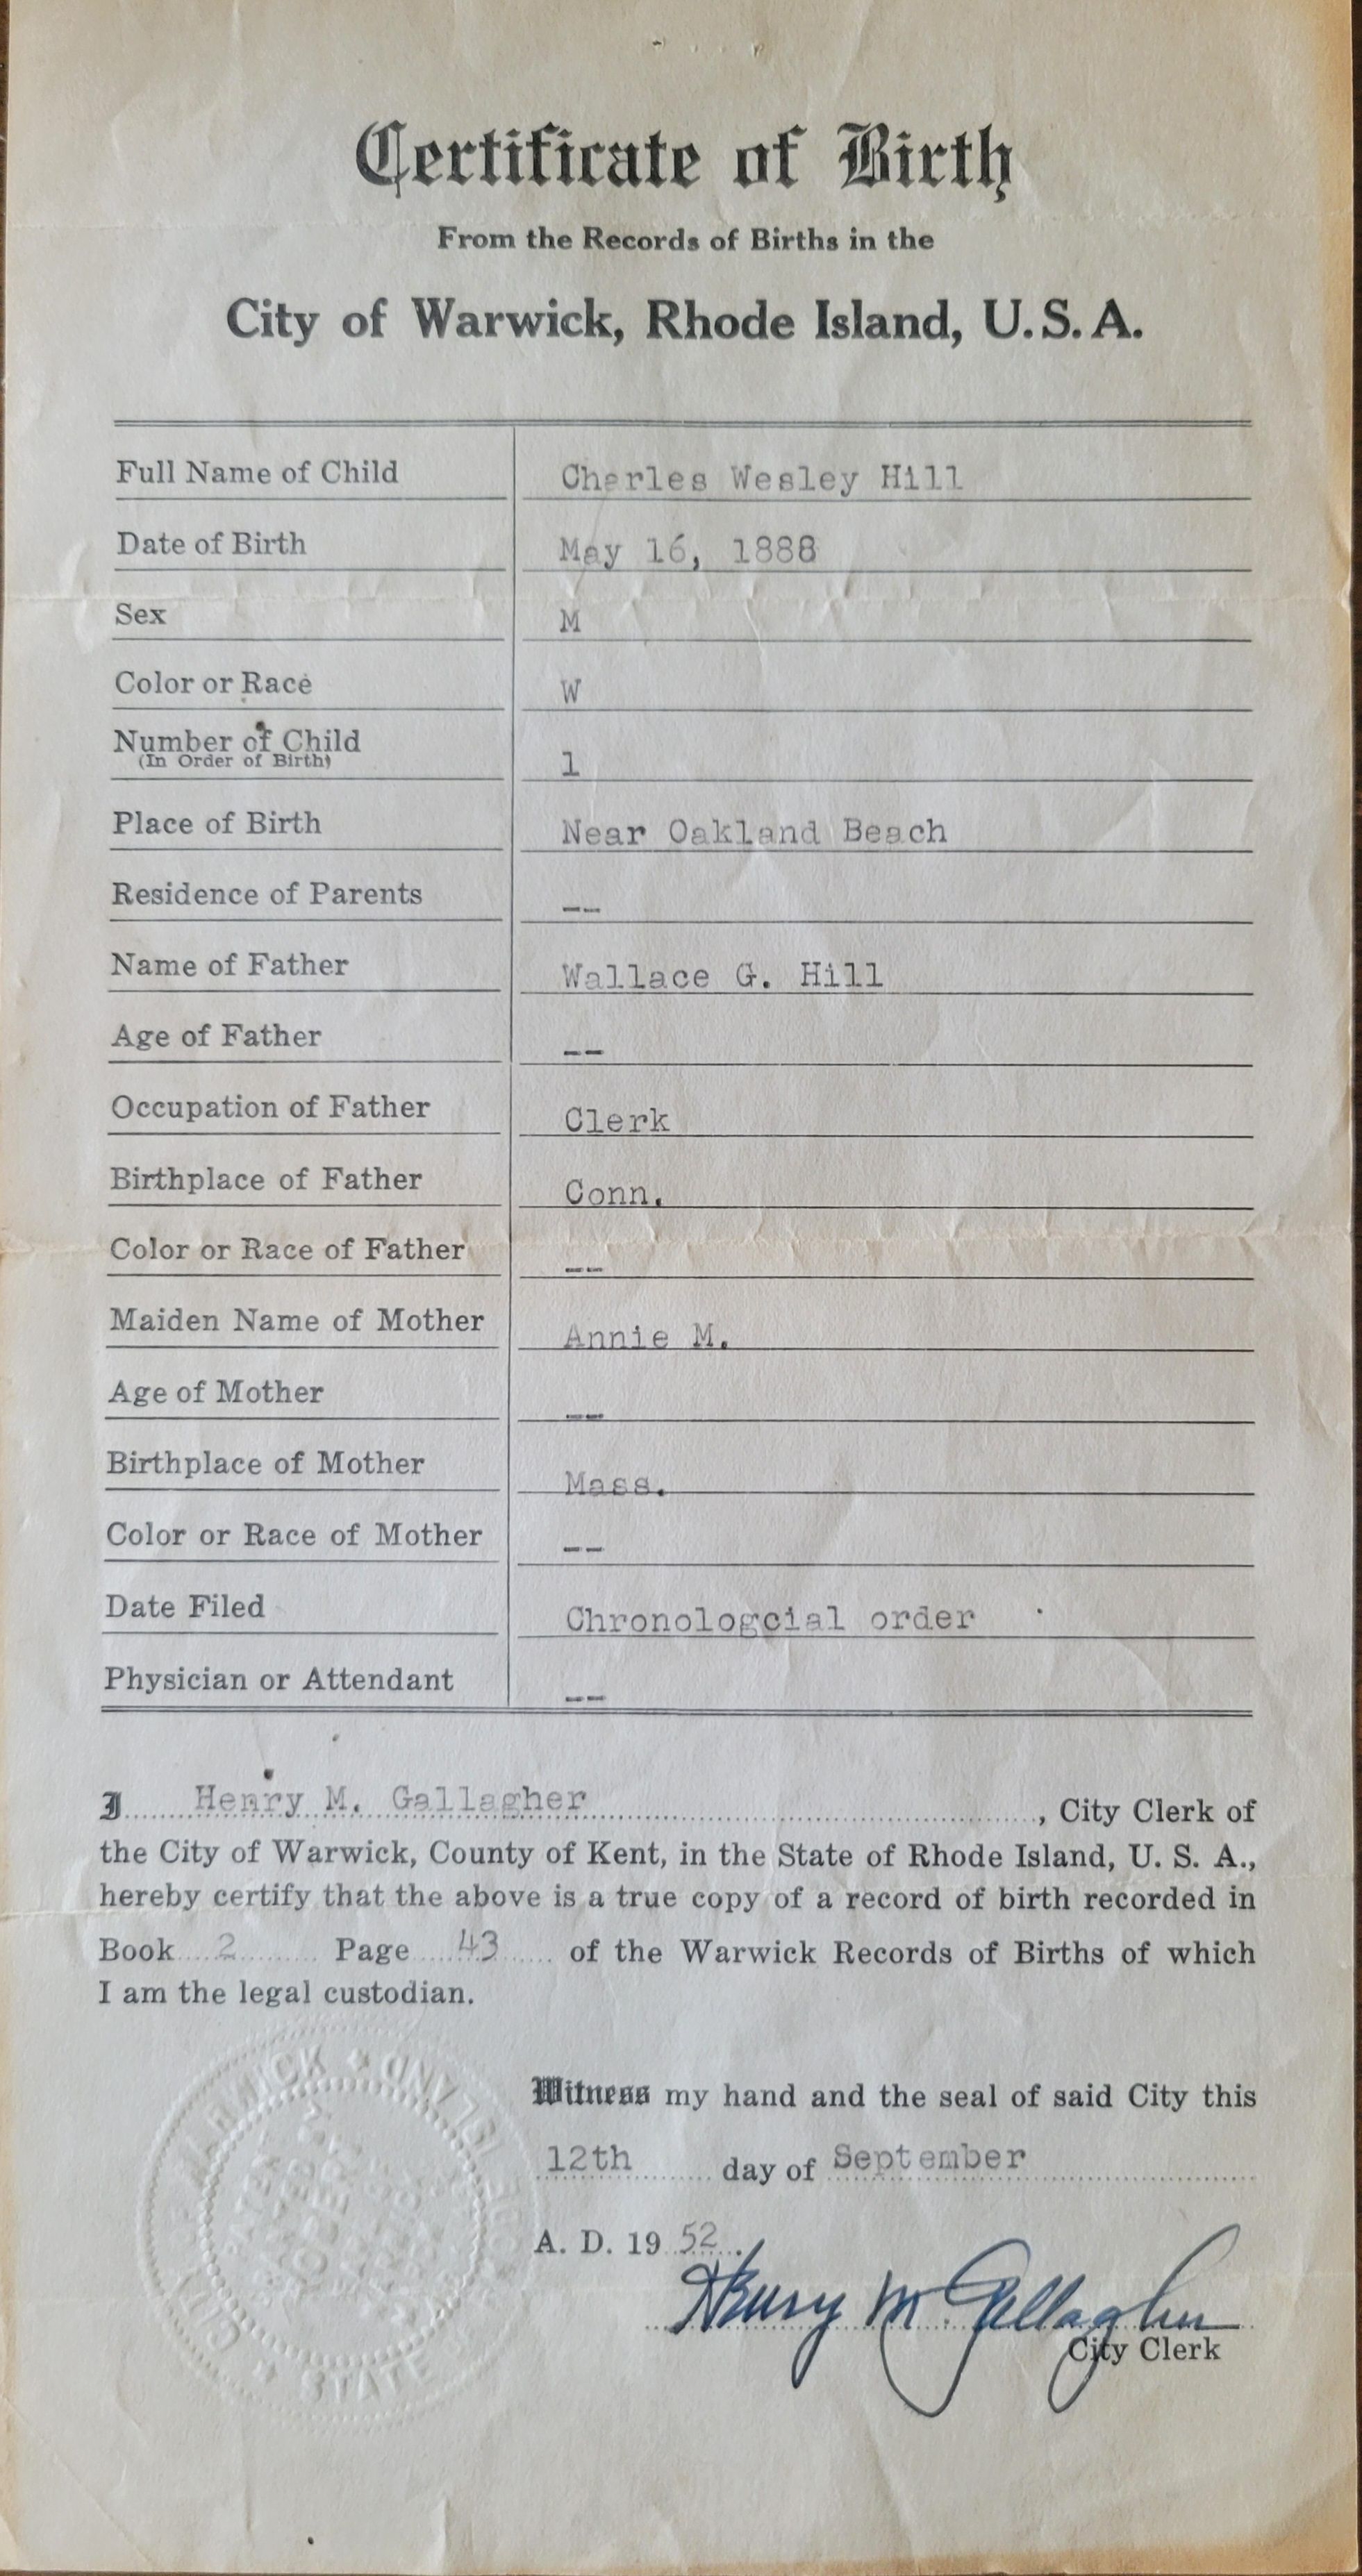 Certificate of Birth
From the Records of Births in the
City of Warwick, Rhode Island, U.S.A.
Full Name of Child Charles Wesley Hill
Date of Birth May 16, 1888
Sex M
Color or Race W
Number of Child 1
(In Order of Birth)
Place of Birth Near Oakland Beach
Residence of Parents --
Name of Father Wallace G. Hill
Age of Father --
Occupation of Father Clerk
Birthplace of Father Conn.
Color or Race of Father --
Maiden Name of Mother Annie M.
Age of Mother --
Birthplace of Mother Mass.
Color or Race of Mother --
Date Filed Chronologcial order
Physician or Attendant --
I Henry M. Gallagher, City Clerk of
the City of Warwick, County of Kent, in the State of Rhode Island, U. S. A.,
hereby certify that the above is a true copy of a record of birth recorded in
Book 2 Page 43 of the Warwick Records of Births of which
I am the legal custodian.
Witness my hand and the seal of said City this
12th day of September
A. D. 19 52.
Henry M. Gallagher
City Clerk
CITY WARWICK
STATE